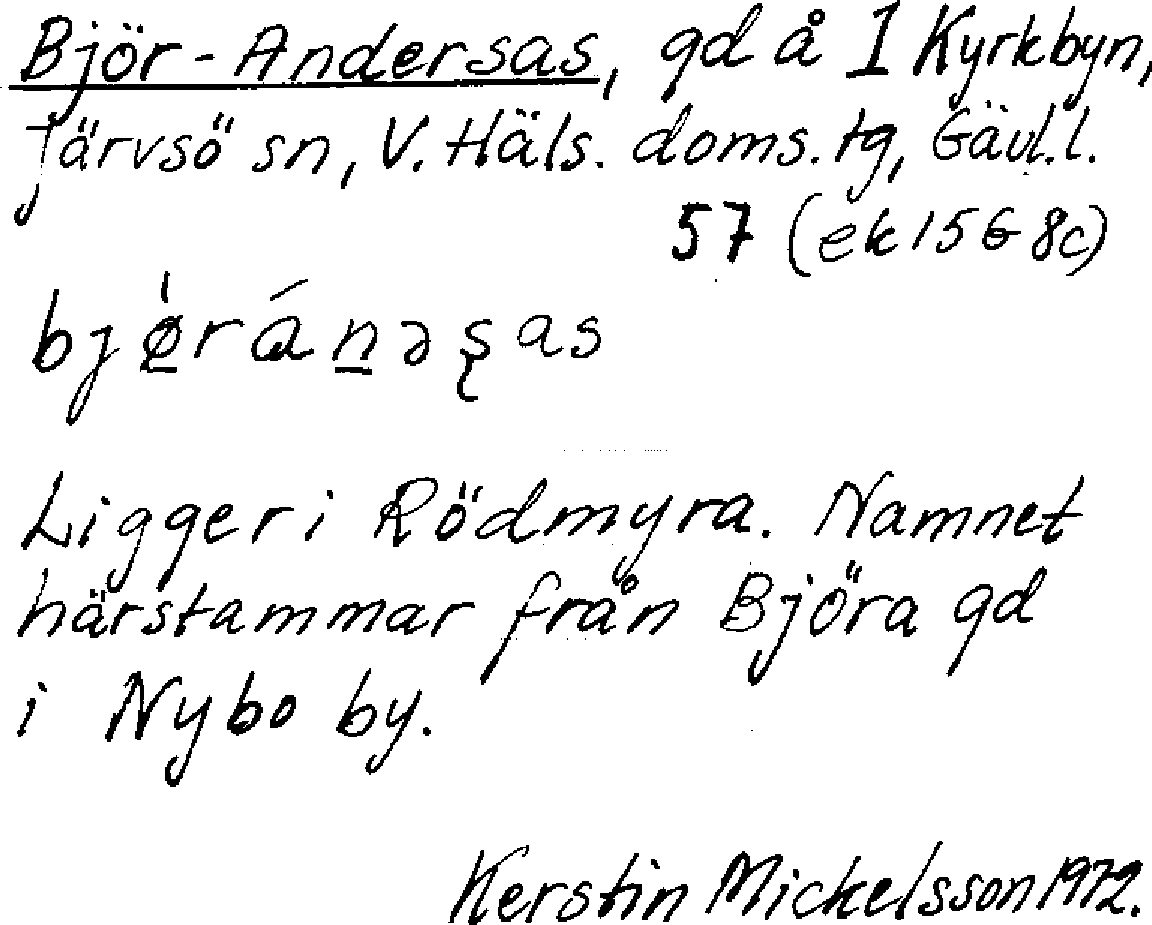 Björ-Andersas, gd å 1 Kyrkbyn,
Järvsö sn, V. Häls. doms. tg, Gävl. l.
57 (ek 15 G 8c)
bjø̲̀ránəşas
Ligger i Rödmyra. Namnet
härstammar från Björa gd
i Nybo by.
Kerstin Mickelsson 1972.